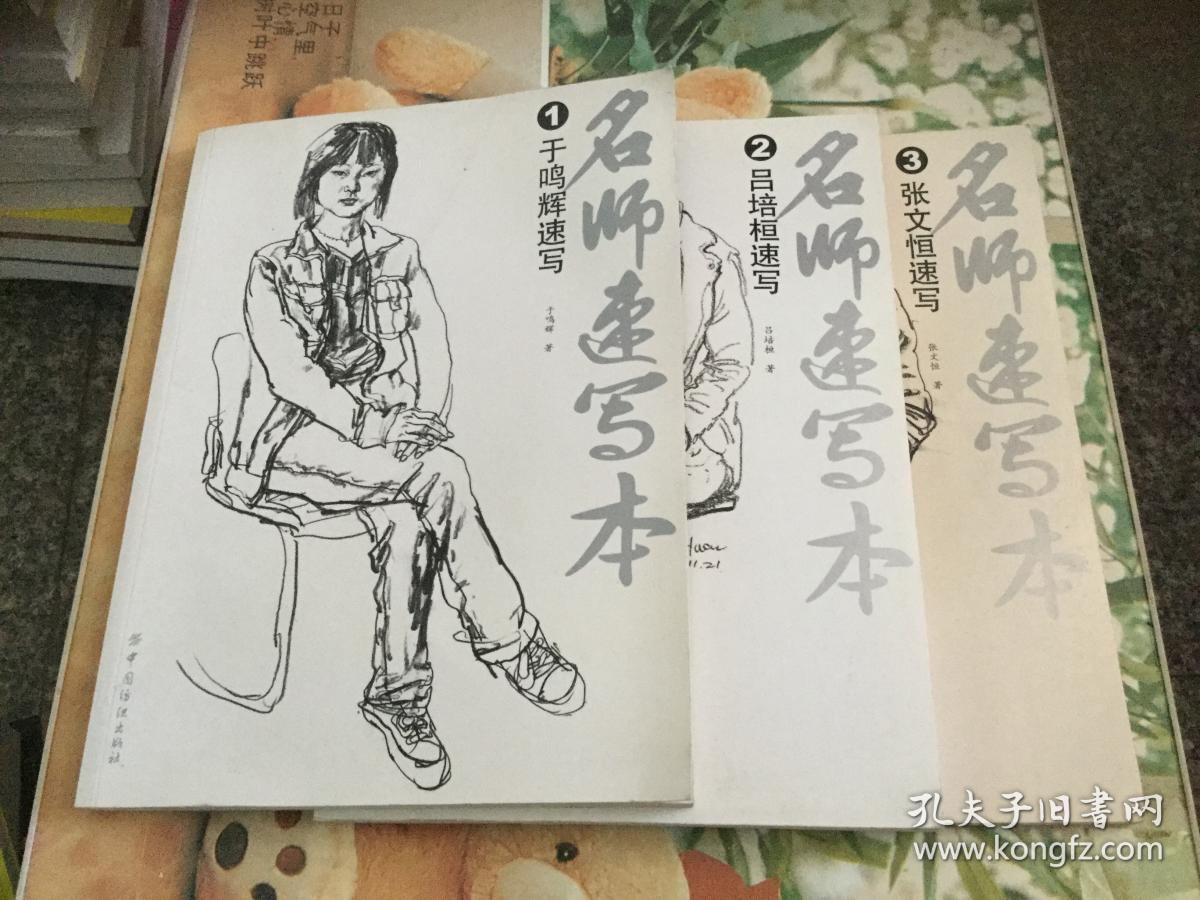 日子
空气里
心情
树叶中跳跃
名师速写本
1 于鸣辉速写
于鸣辉 著
中国纺织出版社
名师速写本
2 吕培桓速写
吕培桓 著
Huan
11.21
名师速写本
3 张文恒速写
张文恒 著
孔夫子旧书网
www.kongfz.com